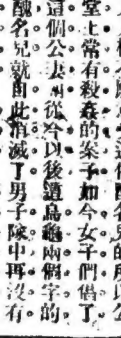 名兒的所以公
堂上常有殺姦的案子如今女子們倡了
這個公從今以後這烏龜兩個字的
醜名兒就由此消滅了男子隊中再沒有